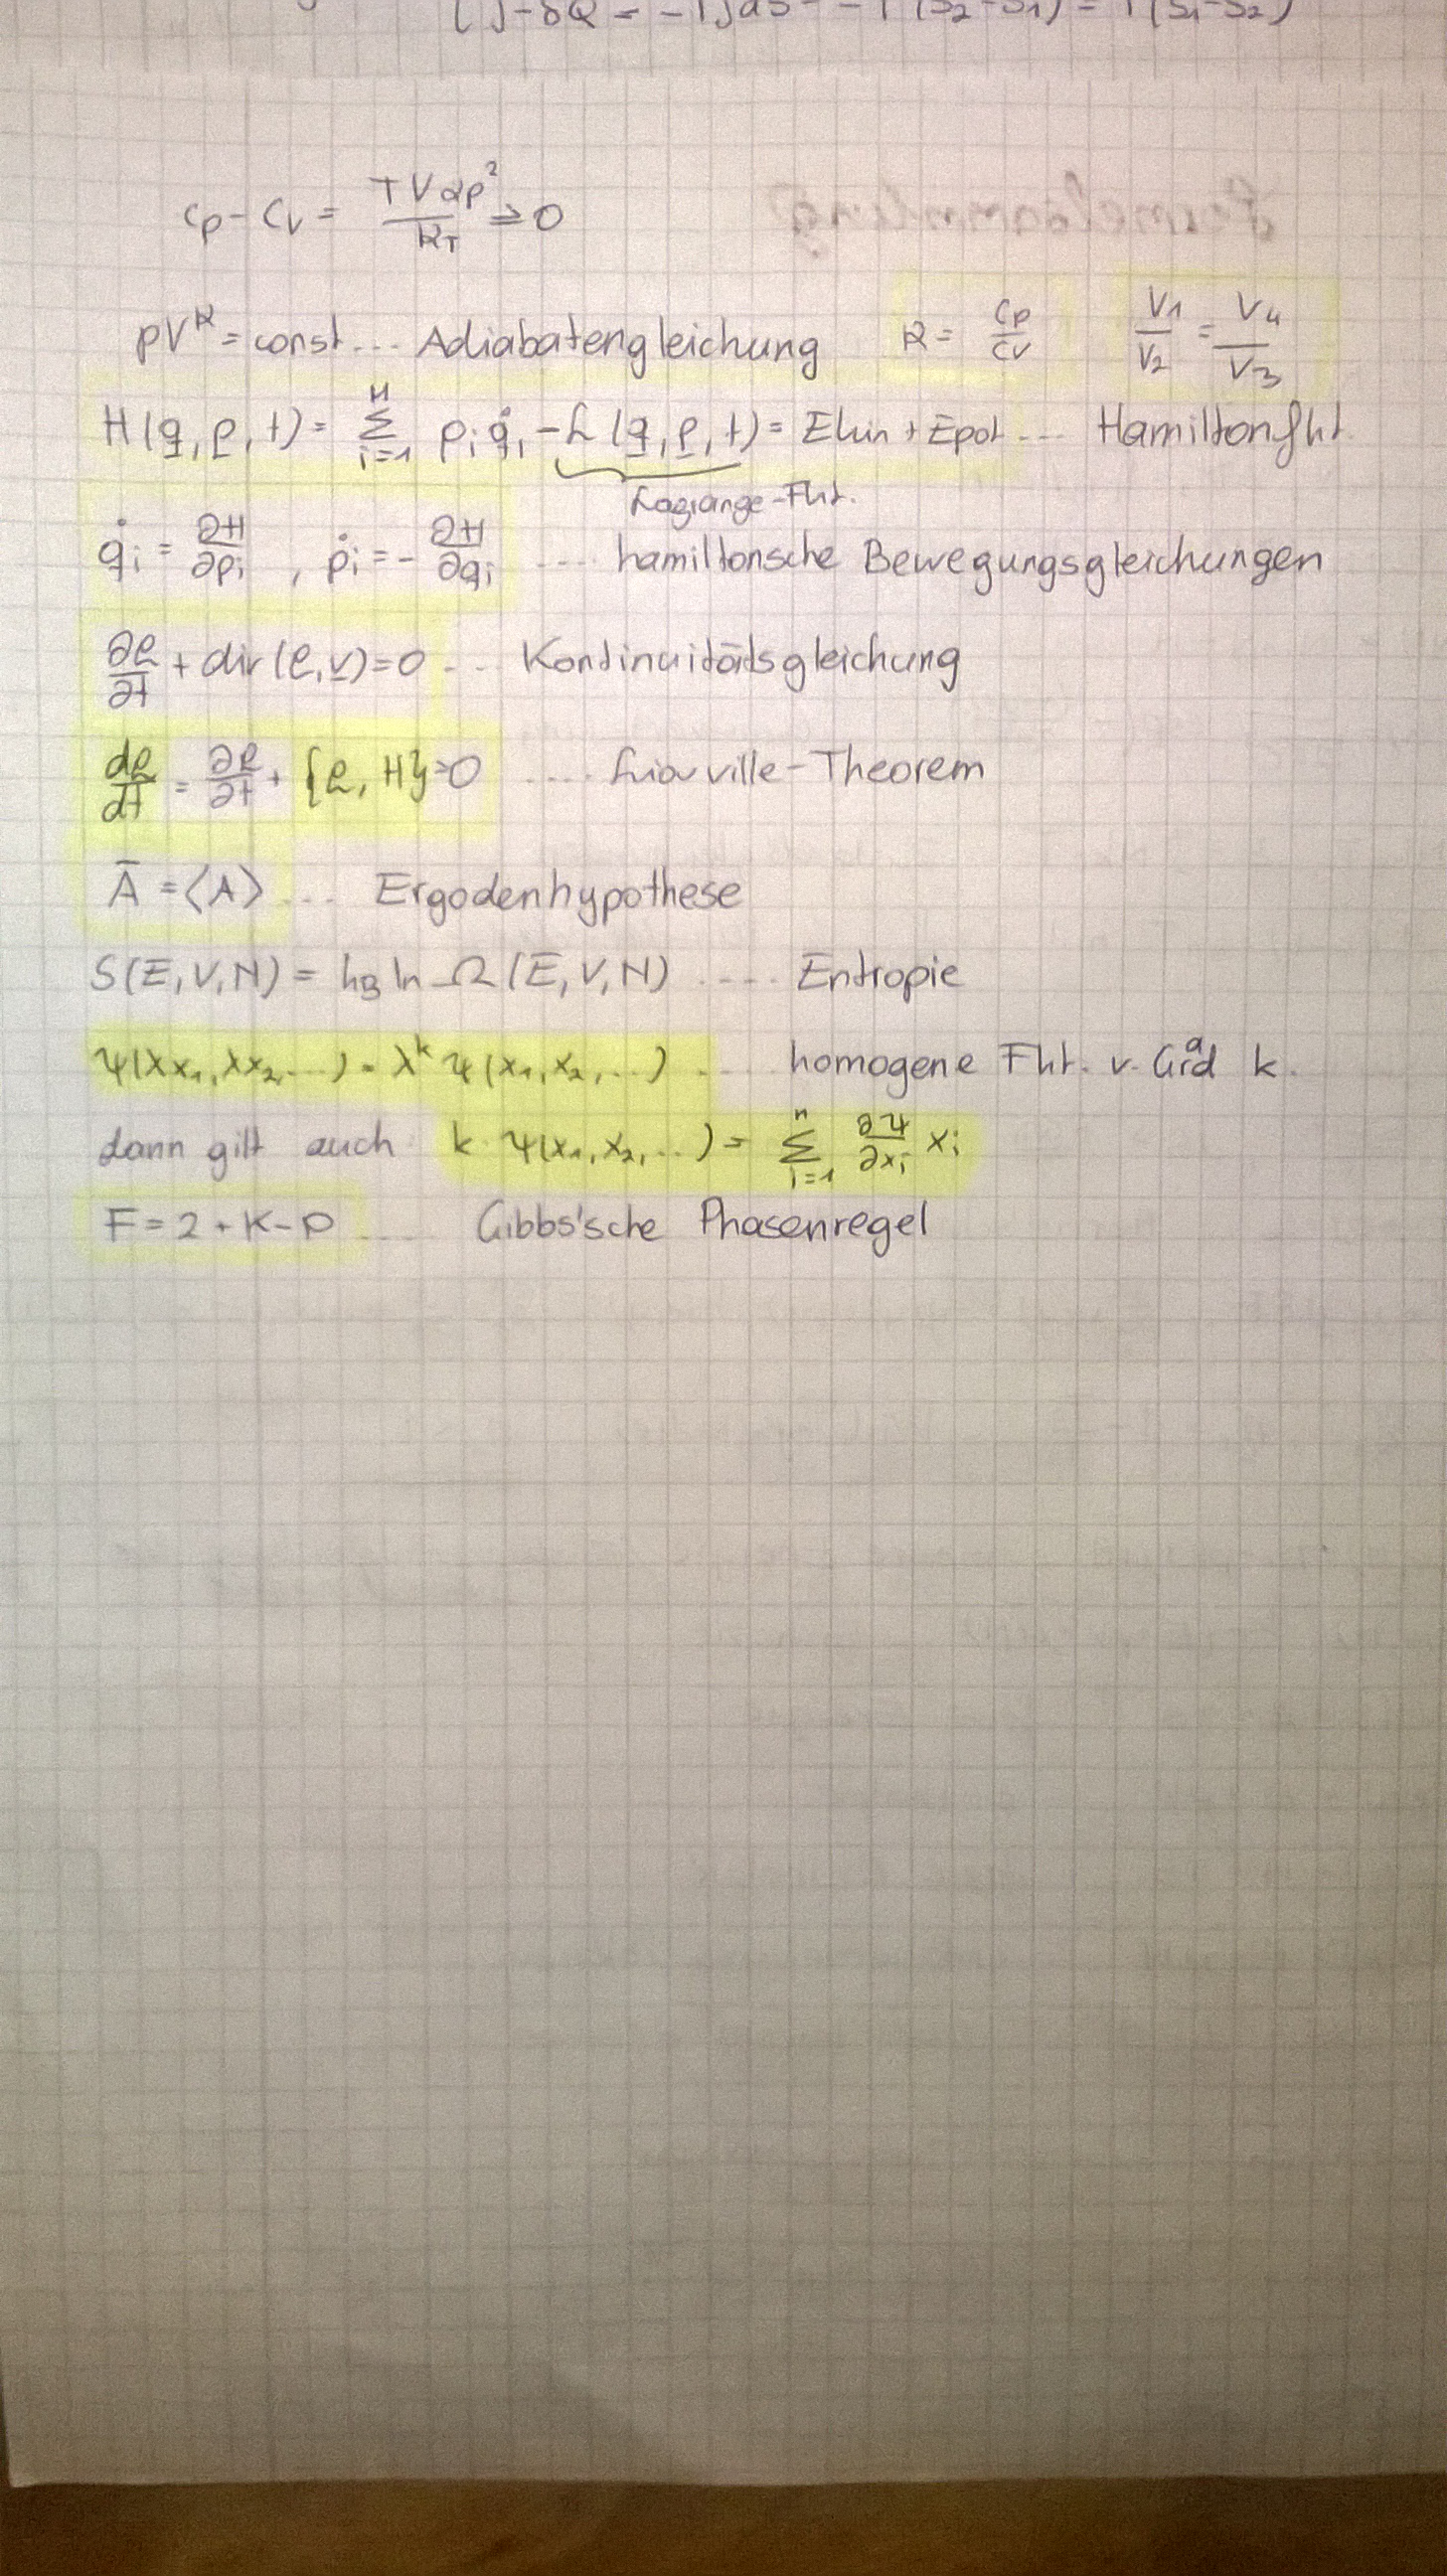 ∫-δQ = -T∫dS = -T(S₂-S₁) = T(S₁-S₂)
Formelsammlung
cp - cv = TVαp²/κT ≥ 0
pV^κ = const... Adiabatengleichung κ = cp/cv V1/V2 = V4/V3
H(q, p, t) = Σ_{i=1}^{N} pi q̇i - L(q, p, t) = Ekin + Epot ... Hamiltonfkt.
Lagrange-Fkt.
q̇i = ∂H/∂pi , ṗi = - ∂H/∂qi ... hamiltonsche Bewegungsgleichungen
∂ρ/∂t + div(ρ, v) = 0 ... Kontinuitätsgleichung
dρ/dt = ∂ρ/∂t + {ρ, H} = 0 .... Liouville-Theorem
Ā = ⟨A⟩ ... Ergodenhypothese
S(E, V, N) = kB ln Ω (E, V, N) .... Entropie
ψ(λx1, λx2, ...) = λ^k ψ(x1, x2, ...) ... homogene Fkt. v. Grad k.
dann gilt auch k · ψ(x1, x2, ...) = Σ_{i=1}^{n} ∂ψ/∂xi xi
F = 2 + K - P .... Gibbs'sche Phasenregel